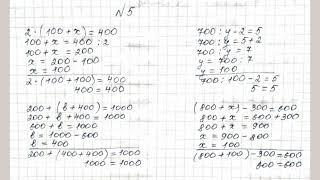 N5
2·(100+x)=400
100+x=400:2
100+x=200
x=200-100
x=100
2·(100+100)=400
400=400
700:y-2=5
700:y=5+2
700:y=7
y=700:7
y=100
700:100-2=5
5=5
200+(b+400)=1000
200+b+400=1000
600+b=1000
b=1000-600
b=400
200+(400+400)=1000
1000=1000
(800+x)-300=600
800+x=600+300
800+x=900
x=900-800
x=100
(800+100)-300=600
600=600